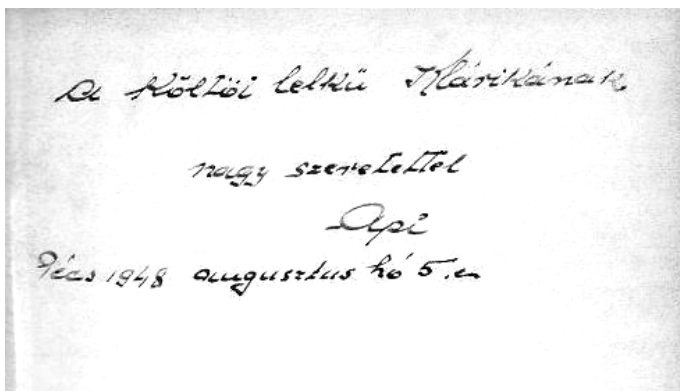 A költői lelkü Márikának
nagy szeretettel
Api
Pécs 1948 augusztus hó 5.en